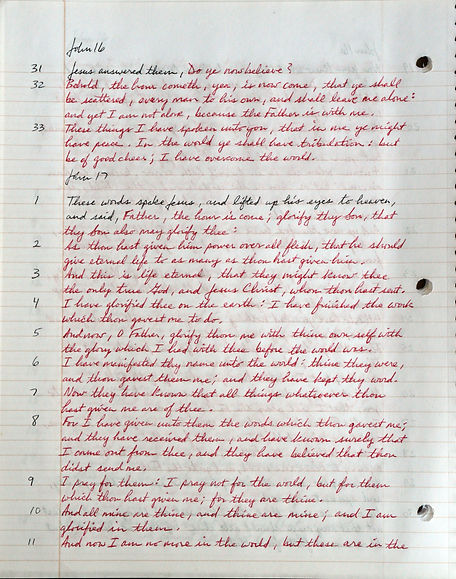 John 16
31 Jesus answered them, Do ye now believe?
32 Behold, the hour cometh, yea, is now come, that ye shall
be scattered, every man to his own, and shall leave me alone:
and yet I am not alone, because the Father is with me.
33 These things I have spoken unto you, that in me ye might
have peace. In the world ye shall have tribulation: but
be of good cheer; I have overcome the world.
John 17
1 These words spoke Jesus, and lifted up his eyes to heaven,
and said, Father, the hour is come; glorify thy Son, that
thy Son also may glorify thee:
2 As thou hast given him power over all flesh, that he should
give eternal life to as many as thou hast given him.
3 And this is life eternal, that they might know thee
the only true God, and Jesus Christ, whom thou hast sent.
4 I have glorified thee on the earth: I have finished the work
which thou gavest me to do.
5 And now, O Father, glorify thou me with thine own self with
the glory which I had with thee before the world was.
6 I have manifested thy name unto the world: thine they were,
and thou gavest them me; and they have kept thy word.
7 Now they have known that all things whatsoever thou
hast given me are of thee.
8 For I have given unto them the words which thou gavest me;
and they have received them, and have known surely that
I came out from thee, and they have believed that thou
didst send me.
9 I pray for them: I pray not for the world, but for them
which thou hast given me; for they are thine.
10 And all mine are thine, and thine are mine; and I am
glorified in them.
11 And now I am no more in the world, but these are in the